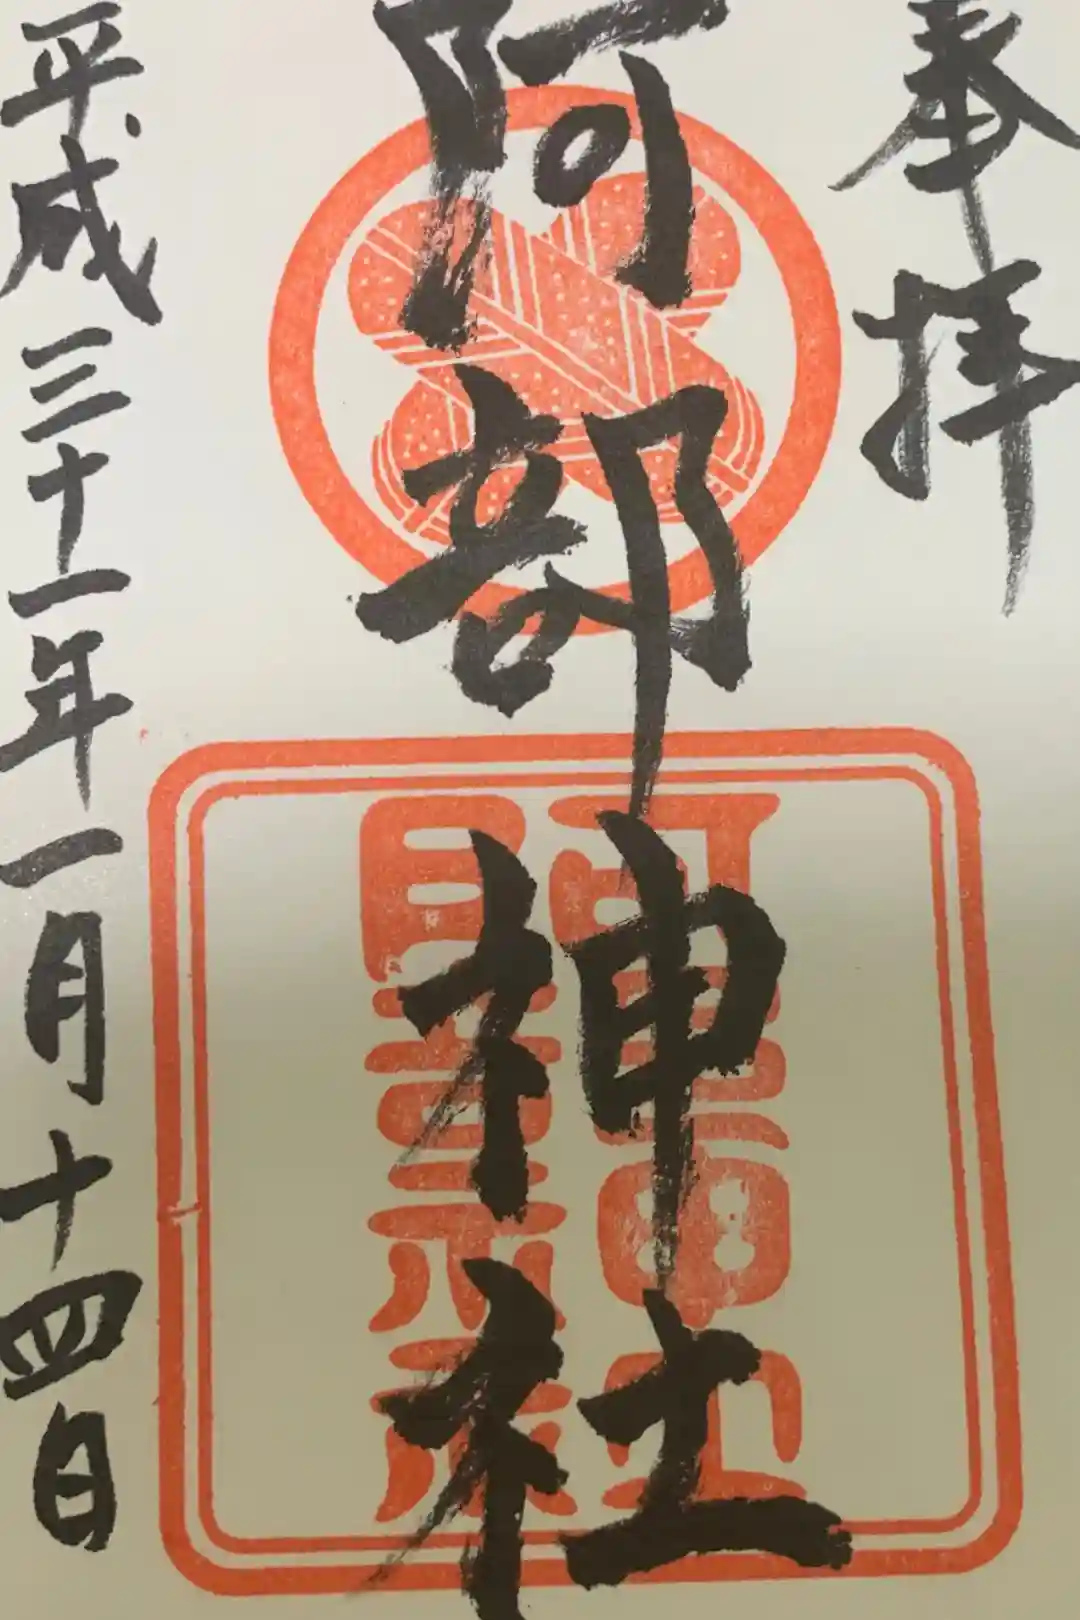 奉拝
阿部神社
阿部神社
平成三十一年一月十四日